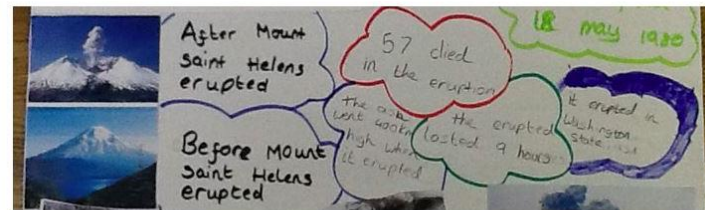 After Mount
Saint Helens
erupted
Before Mount
Saint Helens
erupted
57 died
in the eruption
18 may 1980
the ash
went 400km
high when
it erupted
the erupted
lasted 9 hours
it erupted in
Washington
State